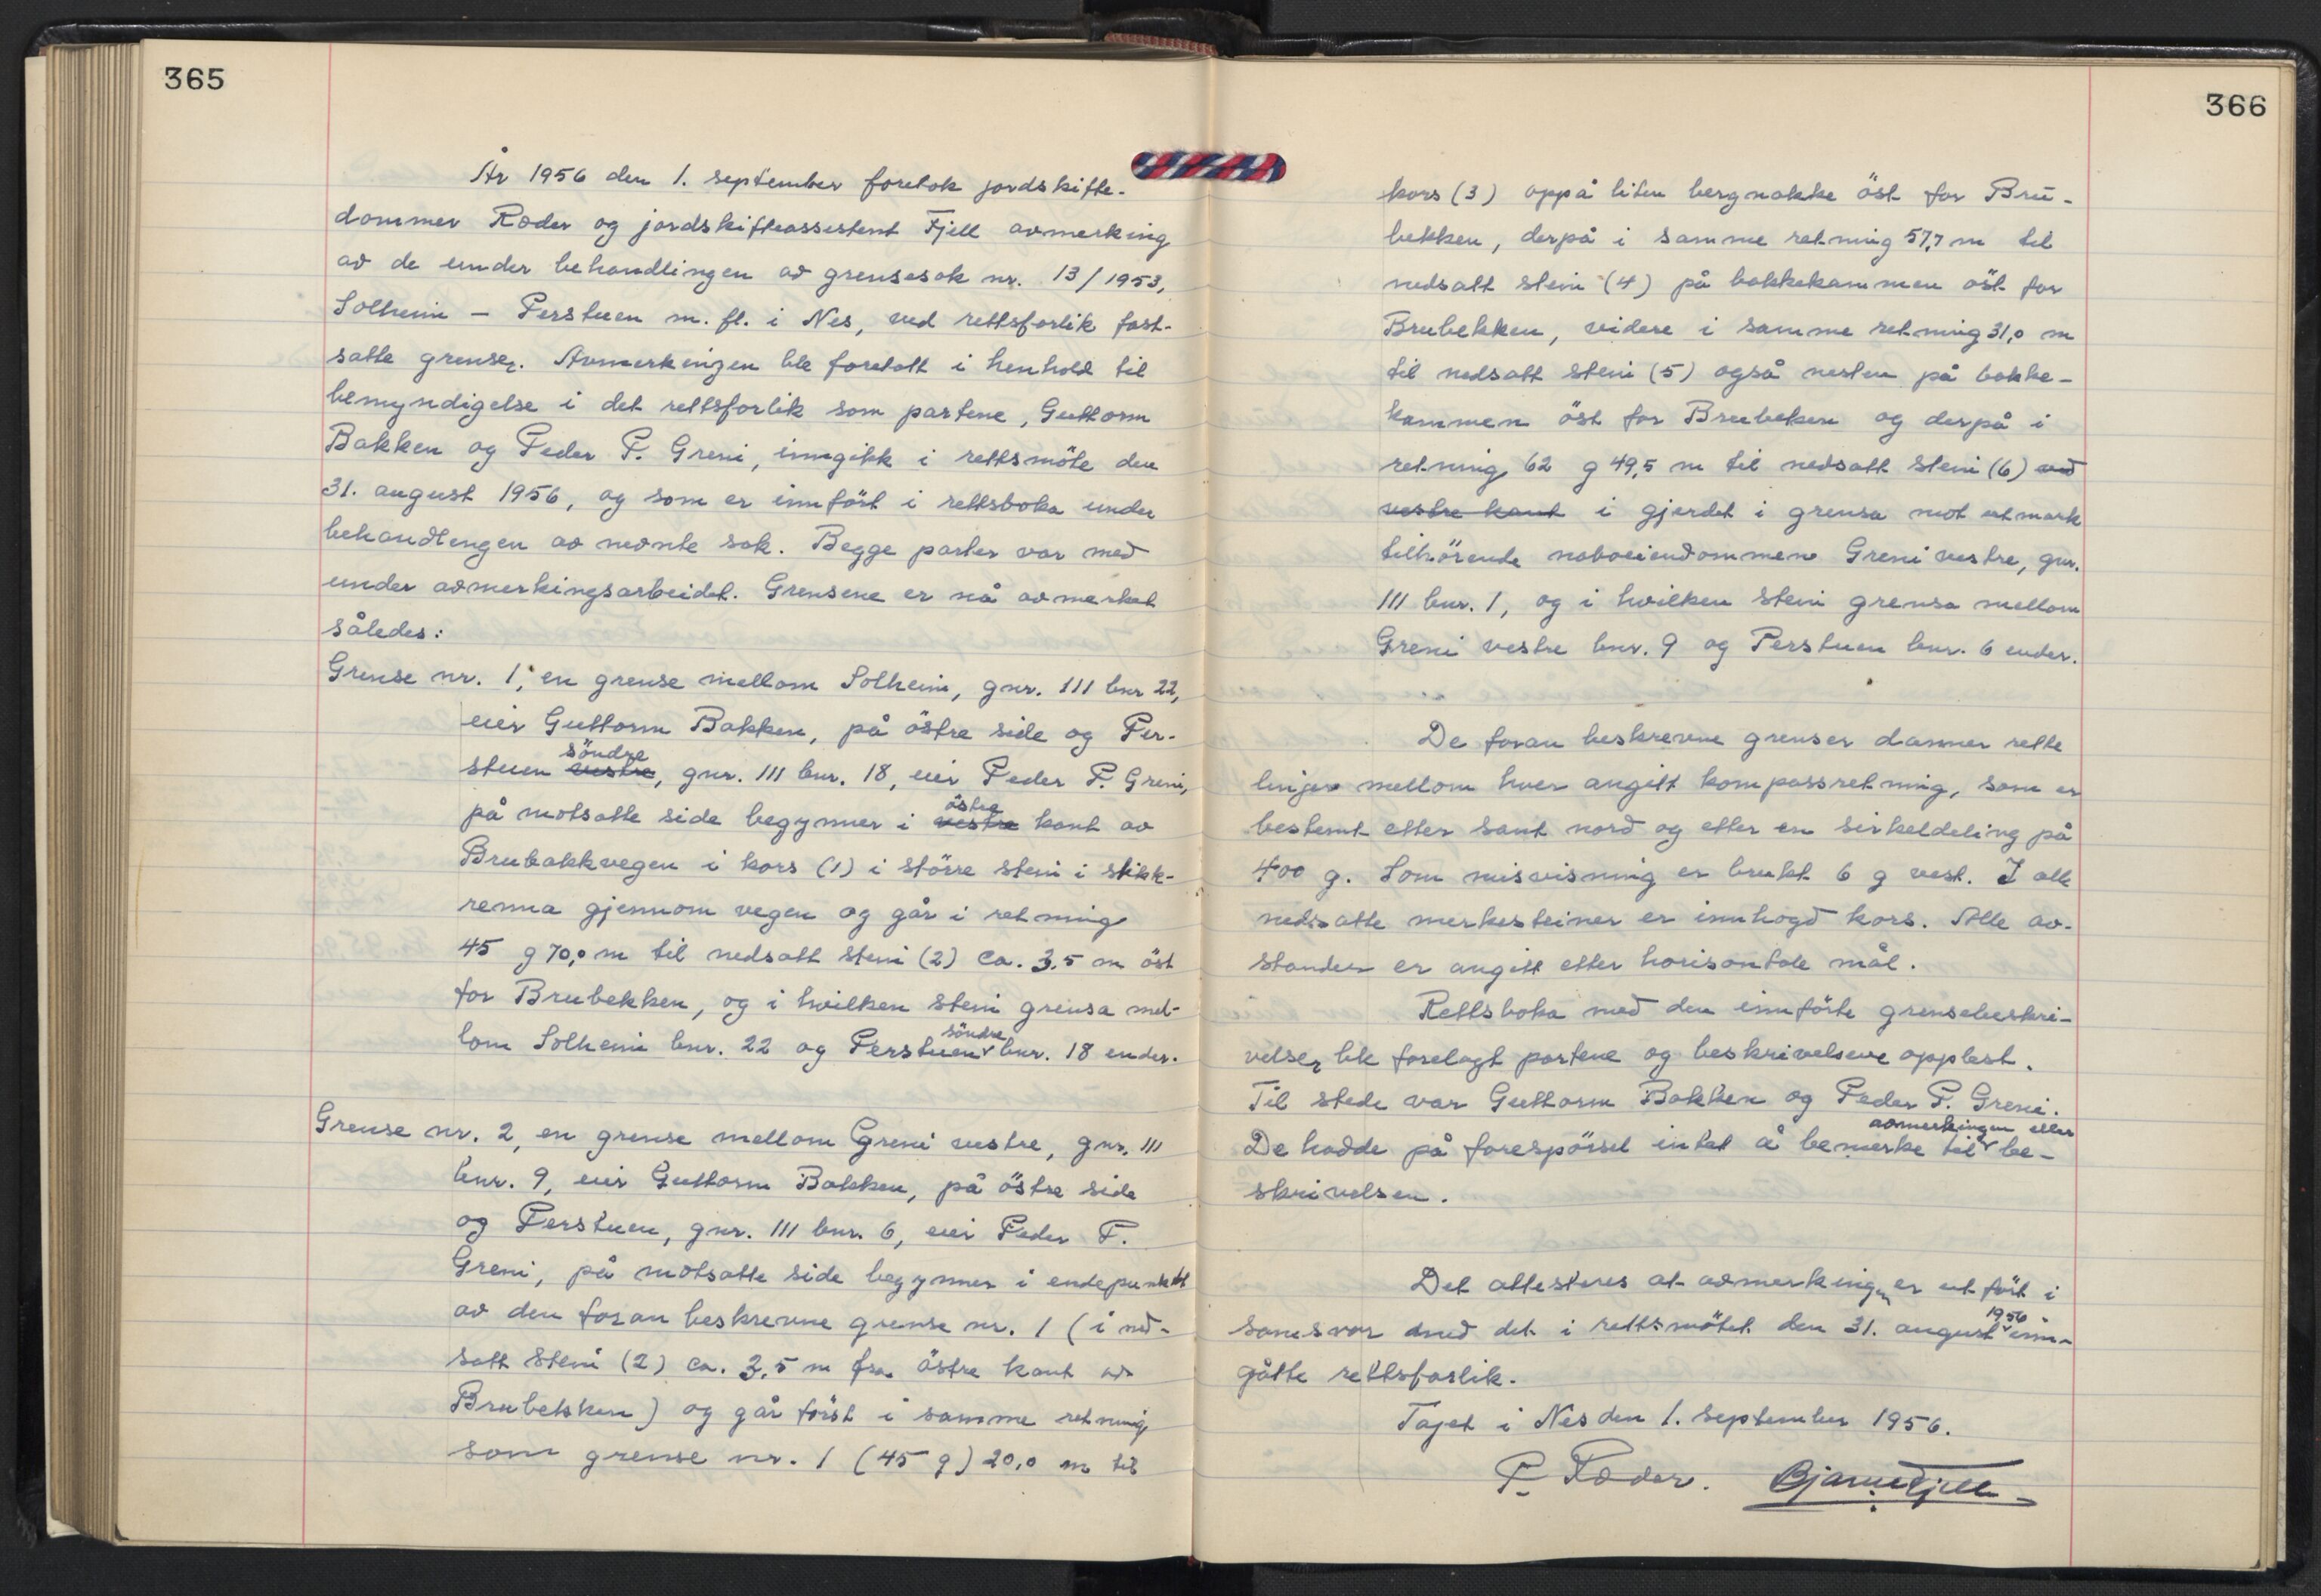 365
År 1956 den 1. september foretok jordskifte-
dommer Røder og jordskifteassistent Fjell avmerking
av de under behandlingen av grensesak nr. 13/1953,
Solheim - Perstuen m. fl. i Nes, ved rettsforlik fast-
satte grenser. Avmerkingen ble foretatt i henhold til
bemyndigelse i det rettsforlik som partene, Guttorm
Bakken og Peder P. Greni, inngikk i rettsmöte den
31. august 1956, og som er innfört i rettsboka under
behandlingen av nevnte sak. Begge parter var med
under avmerkingsarbeidet. Grensene er nå avmerket
således:
Grense nr. 1, en grense mellom Solheim, gnr. 111 bnr 22,
eier Guttorm Bakken, på östre side og Per-
stuen vestre söndre, gnr. 111 bnr. 18, eier Peder P. Greni,
på motsatte side begynner i vestre östre kant av
Brubakkvegen i kors (1) i större stein i stikk-
renna gjennom vegen og går i retning
45 g 70,0 m til nedsatt stein (2) ca. 3,5 m öst
for Brubekken, og i hvilken stein grensa mel-
lom Solheim bnr. 22 og Perstuen söndre bnr. 18 ender.
Grense nr. 2, en grense mellom Greni vestre, gnr. 111
bnr. 9, eier Guttorm Bakken, på östre side
og Perstuen, gnr. 111 bnr. 6, eier Peder P.
Greni, på motsatte side begynner i endepunktet
av den foran beskrevne grense nr. 1 (i ned-
satt stein (2) ca. 3,5 m fra östre kant av
Brubekken) og går först i samme retning
som grense nr. 1 (45 g) 20,0 m til
366
kors (3) oppå liten bergnakke öst for Bru-
bekken, derpå i samme retning 57,7 m til
nedsatt stein (4) på bakkekammen öst for
Brubekken, videre i samme retning 31,0 m
til nedsatt stein (5) også nesten på bakke-
kammen öst for Brubekken og derpå i
retning 62 g 49,5 m til nedsatt stein (6) ved
vestre kant i gjerdet i grensa mot utmark
tilhörende naboeiendommen Greni vestre, gnr.
111 bnr. 1, og i hvilken stein grensa mellom
Greni vestre bnr. 9 og Perstuen bnr. 6 ender.
De foran beskrevne grenser danner rette
linjer mellom hver angitt kompassretning, som er
bestemt etter sant nord og etter en sirkeldeling på
400 g. Som misvisning er brukt 6 g vest. I alle
nedsatte merkesteiner er innhogd kors. Alle av-
stander er angitt etter horisontale mål.
Rettsboka med den innförte grensebeskri-
velse, ble forelagt partene og beskrivelsene opplest.
Til stede var Guttorm Bakken og Peder P. Greni.
De hadde på forespörsel intet å bemerke til avmerkingen eller be-
skrivelsen.
Det attesteres at avmerkingen er utfört i
samsvar med det i rettsmötet den 31. august 1956 inn-
gåtte rettsforlik.
Tajet i Nes den 1. september 1956.
P. Røder. Bjarne Fjell